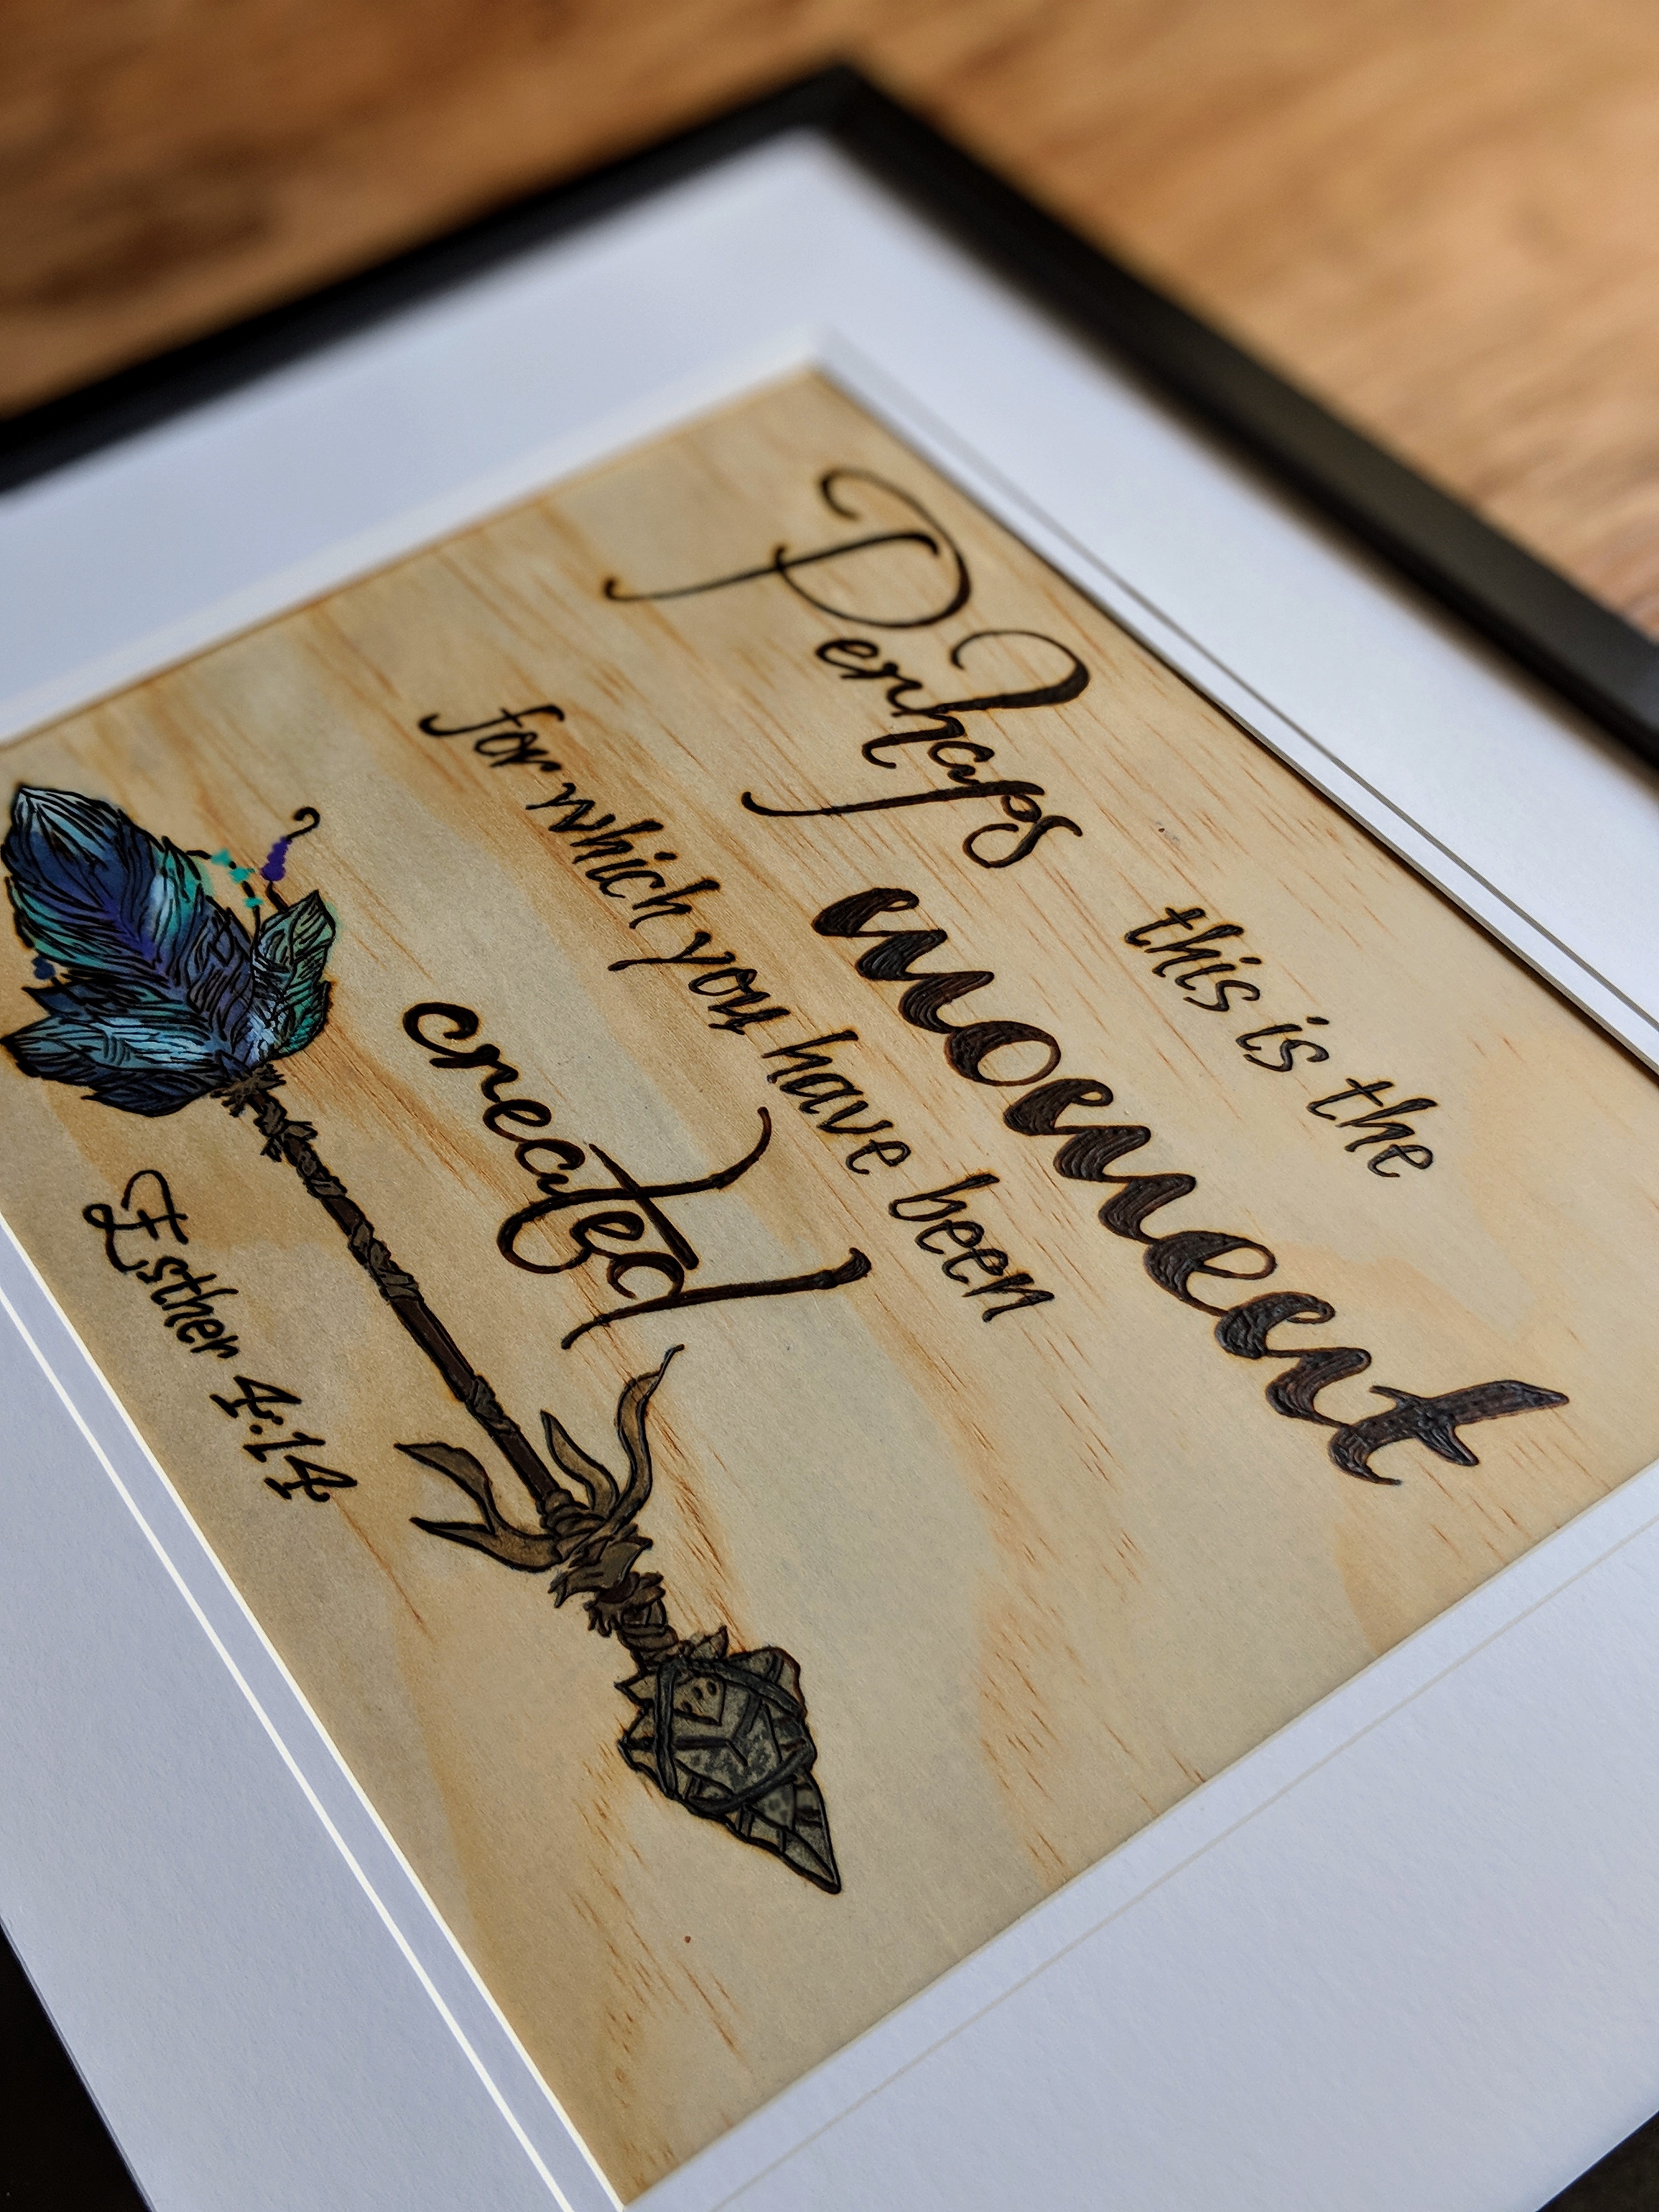 Perhaps this is the
moment
for which you have been
created
Esther 4:14